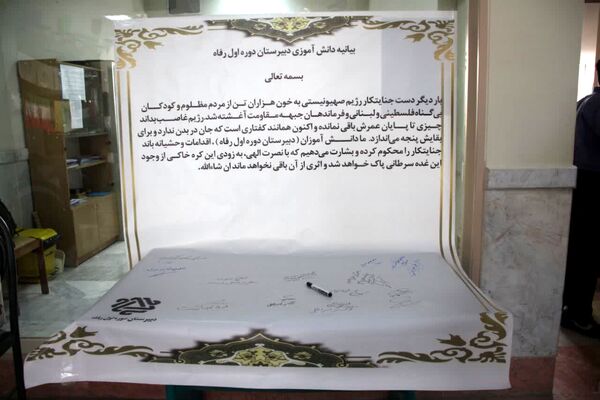 بیانیه دانش آموزی دبیرستان دوره اول رفاه
بسمه تعالی
بار دیگر دست جنایتکار رژیم صهیونیستی به خون هزاران تن از مردم مظلوم و کودکان
بی‌گناه فلسطینی و لبنانی و فرماندهان جبهه مقاومت آغشته شد رژیم غاصب بداند
چیزی تا پایان عمرش باقی نمانده و اکنون همانند کفتاری است که جان در بدن ندارد و برای
بقایش پنجه می‌اندازد. ما دانش آموزان (دبیرستان دوره اول رفاه)، اقدامات وحشیانه باند
جنایتکار را محکوم کرده و بشارت می‌دهیم که با نصرت الهی، به زودی این کره خاکی از وجود
این غده سرطانی پاک خواهد شد و اثری از آن باقی نخواهد ماند ان شاءالله.
دبیرستان دوره اول رفاه